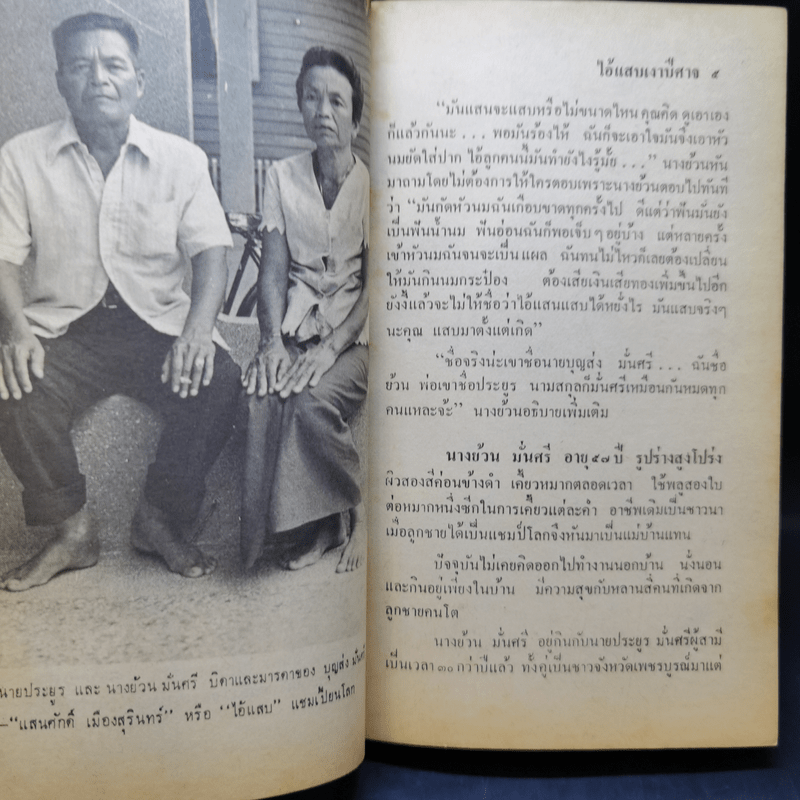 นายประยูร และ นางย้วน มั่นศรี บิดาและมารดาของ บุญส่ง มั่นศรี
—"แสนศักดิ์ เมืองสุรินทร์" หรือ "ไอ้แสบ" แชมเปี้ยนโลก
ไอ้แสบเงาปีศาจ ๕
"มันแสนจะแสบหรือไม่ขนาดไหน คุณคิด ดูเอาเอง
ก็แล้วกันนะ . . . พอมันร้องไห้ ฉันก็จะเอาใจมันจึงเอาหัว
นมยัดใส่ปาก ไอ้ลูกคนนี้มันทำยังไงรู้มั้ย . . ." นางย้วนหัน
มาถามโดยไม่ต้องการให้ใครตอบเพราะนางย้วนตอบไปทันที
ว่า "มันกัดหัวนมฉันเกือบขาดทุกครั้งไป ดีแต่ว่าฟันมันยัง
เป็นฟันน้ำนม ฟันอ่อนฉันก็พอเจ็บๆอยู่บ้าง แต่หลายครั้ง
เข้าหัวนมฉันจนจะเป็นแผล ฉันทนไม่ไหวก็เลยต้องเปลี่ยน
ให้มันกินนมกระป๋อง ต้องเสียเงินเสียทองเพิ่มขึ้นไปอีก
ยังงี้แล้วจะไม่ให้ชื่อว่าไอ้แสนแสบได้หยั่งไร มันแสบจริงๆ
นะคุณ แสบมาตั้งแต่เกิด"
"ชื่อจริงน่ะเขาชื่อนายบุญส่ง มั่นศรี . . . ฉันชื่อ
ย้วน พ่อเขาชื่อประยูร นามสกุลก็มั่นศรีเหมือนกันหมดทุก
คนแหละจ้ะ" นางย้วนอธิบายเพิ่มเติม
นางย้วน มั่นศรี อายุ ๕๗ ปี รูปร่างสูงโปร่ง
ผิวสองสีค่อนข้างดำ เคี้ยวหมากตลอดเวลา ใช้พลูสองใบ
ต่อหมากหนึ่งซีกในการเคี้ยวแต่ละคำ อาชีพเดิมเป็นชาวนา
เมื่อลูกชายได้เป็นแชมป์โลกจึงหันมาเป็นแม่บ้านแทน
ปัจจุบันไม่เคยคิดออกไปทำงานนอกบ้าน นั่งนอน
และกินอยู่เพียงในบ้าน มีความสุขกับหลานสี่คนที่เกิดจาก
ลูกชายคนโต
นางย้วน มั่นศรี อยู่กินกับนายประยูร มั่นศรีผู้สามี
เป็นเวลา ๓๐ กว่าปีแล้ว ทั้งคู่เป็นชาวจังหวัดเพชรบูรณ์มาแต่